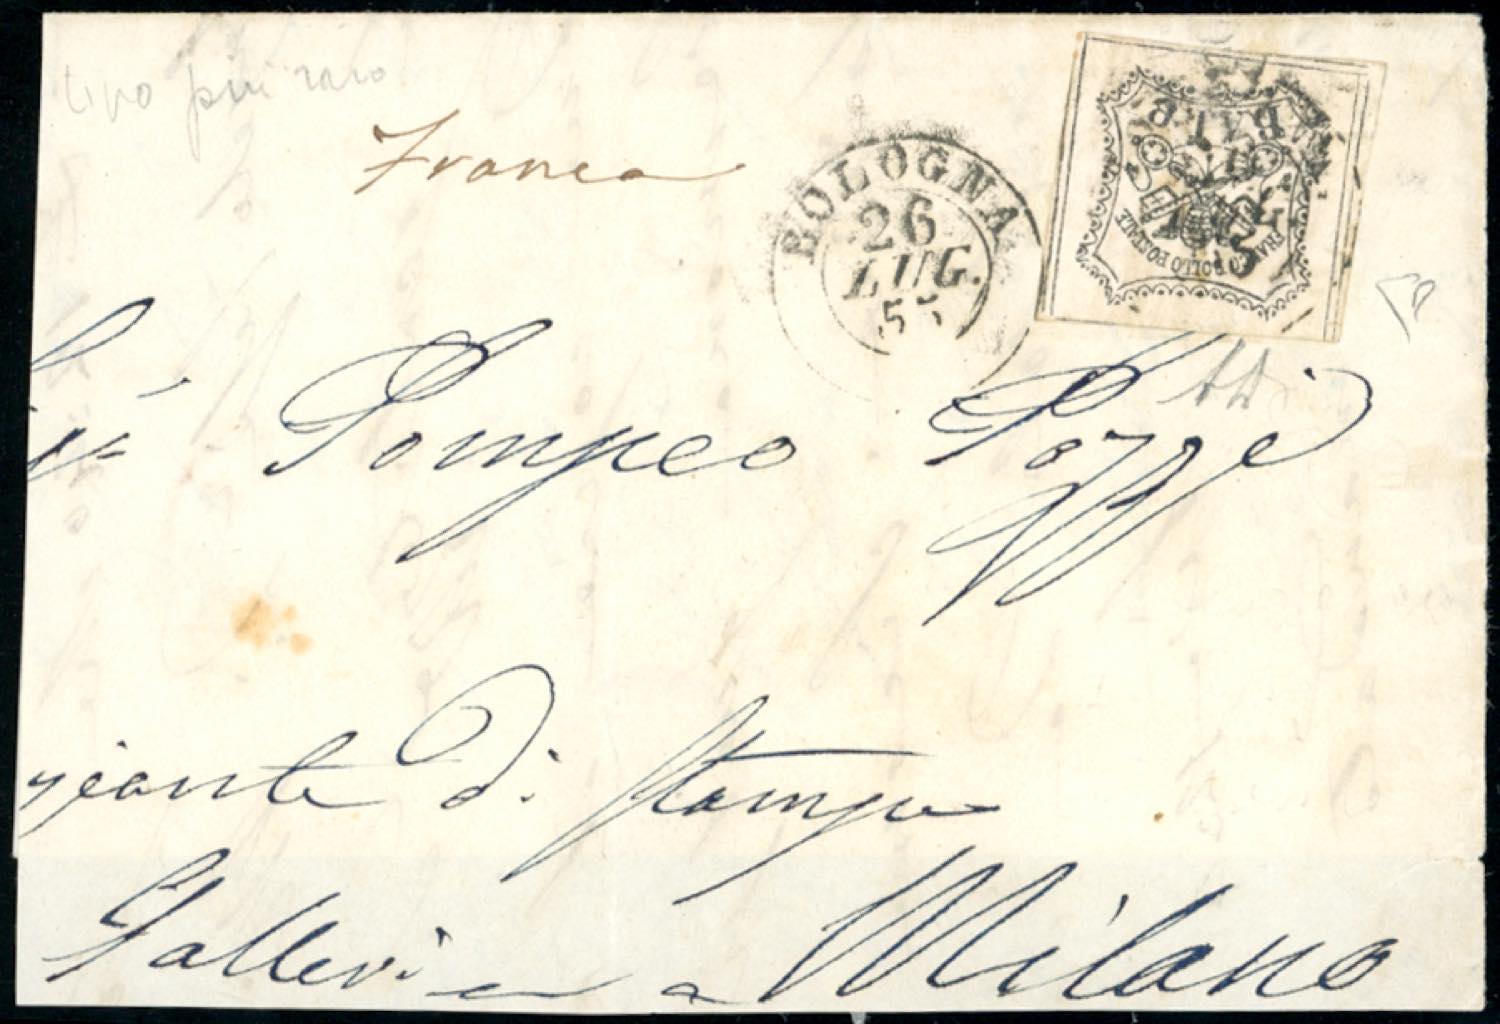 tipo più raro
Franca
BOLOGNA
26
LUG.
55
BAJ 8
FRANCO BOLLO POSTALE
Pompeo Pozzi
geante di Stampe
Galleria a Milano